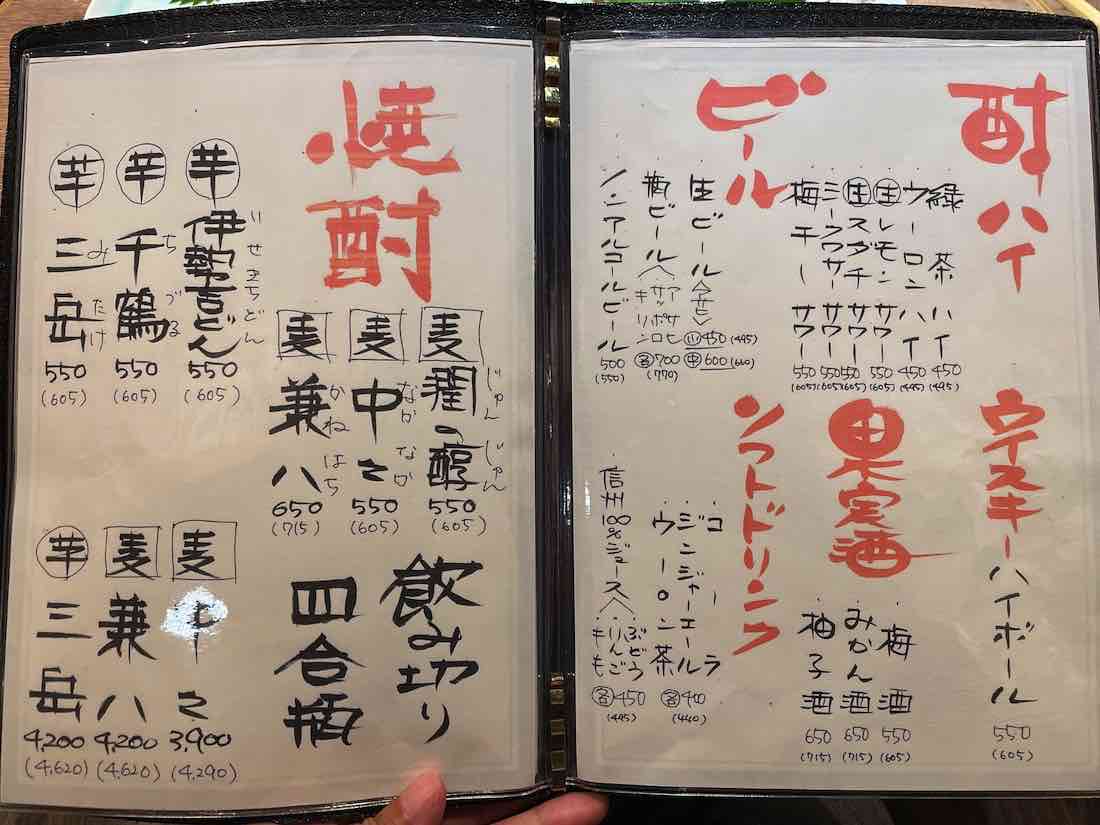 酎ハイ
緑茶ハイ 450 (495)
ウーロンハイ 450 (495)
生レモンサワー 550 (605)
生スダチサワー 550 (605)
シークワサーサワー 550 (605)
梅干しサワー 550 (605)
ビール
生ビール 小 450 (495) 中 600 (660)
瓶ビール〈アサヒ サッポロ キリン 各700 (770)
ノンアルコールビール 500 (550)
ウイスキーハイボール 550 (605)
果実酒
梅酒 550 (605)
みかん酒 650 (715)
柚子酒 650 (715)
ソフトドリンク
コーラ
ジンジャーエール
ウーロン茶
各400 (440)
信州100%ジュース〈ぶどう りんご もも
各450 (495)
焼酎
芋 伊勢吉どん いせきちどん 550 (605)
芋 千鶴 ちづる 550 (605)
芋 三岳 みたけ 550 (605)
麦 潤の醇 じゅん じゅん 550 (605)
麦 中々 なか なか 550 (605)
麦 兼八 かね はち 650 (715)
飲み切り
四合瓶
麦 中々 3,900 (4,290)
麦 兼八 4,200 (4,620)
芋 三岳 4,200 (4,620)